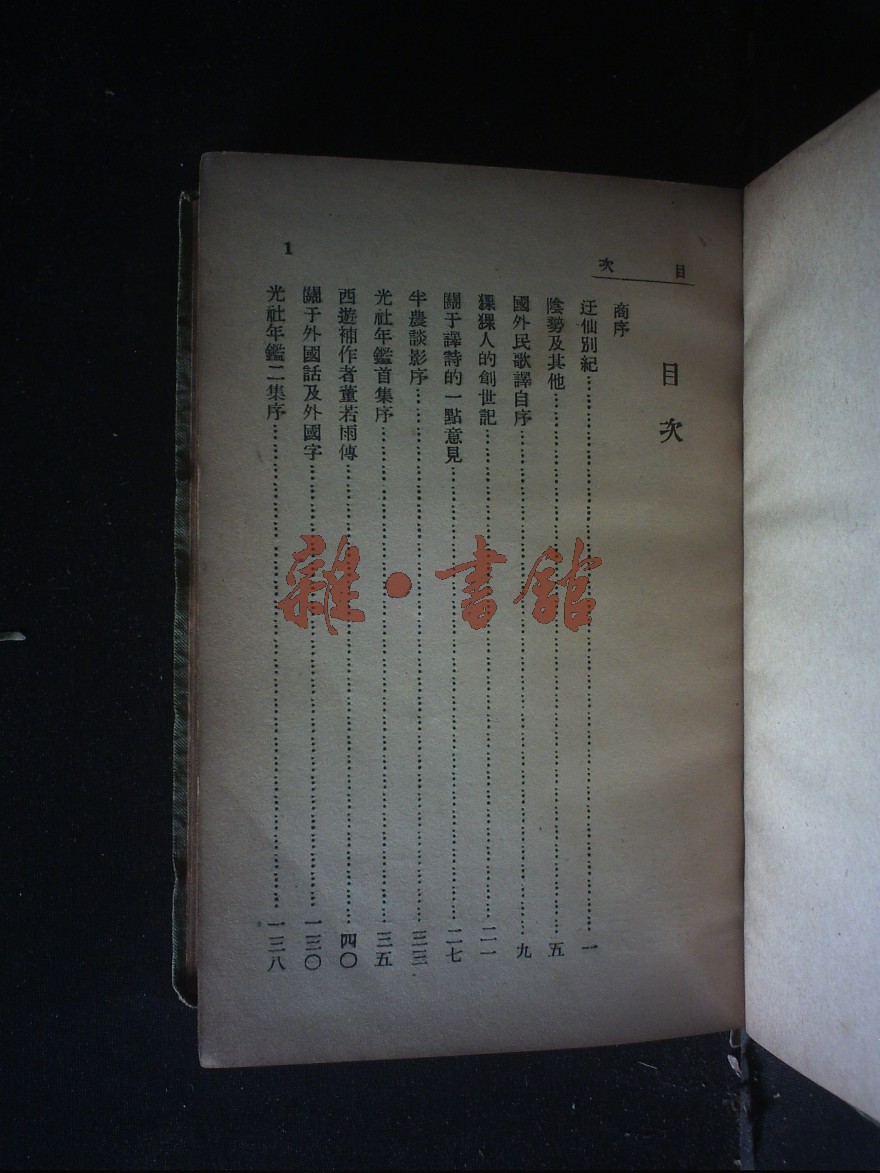 目次
目次
商序
迂仙別紀…………一
陰勢及其他…………五
國外民歌譯自序…………九
猓猓人的創世記…………二一
關于譯詩的一點意見…………二七
半農談影序…………三三
光社年鑑首集序…………三五
西遊補作者董若雨傳…………四〇
關于外國話及外國字…………一三〇
光社年鑑二集序…………一三八
1
雜·書館